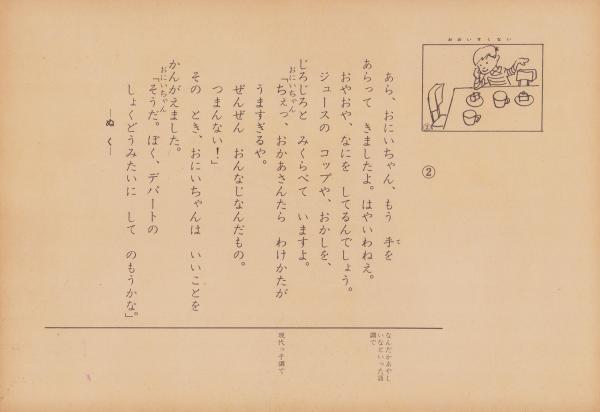 おおいすくない
②
あら、おにいちゃん、もう 手を
て
あらって きましたよ。はやいわねえ。
おやおや、なにを してるんでしょう。
ジュースの コップや、おかしを、
じろじろと みくらべて いますよ。
おにいちゃん
「ちぇっ、おかあさんたら わけかたが
うますぎるや。
ぜんぜん おんなじなんだもの。
つまんない!」
その とき、おにいちゃんは いいことを
かんがえました。
おにいちゃん
「そうだ。ぼく、デパートの
しょくどうみたいに して のもうかな。」
―ぬ く―
なんだかあやし
いなといった語
調で
現代っ子調で